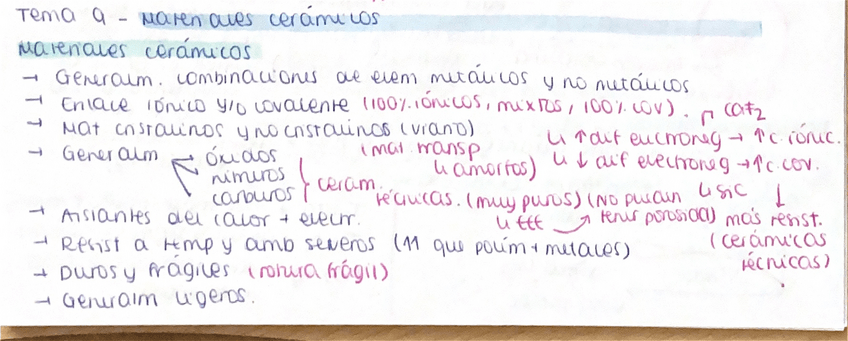 Tema 9 - Materiales cerámicos
Materiales cerámicos
→ Generalm. combinaciones de elem metálicos y no metálicos
→ Enlace iónico y/o covalente (100% iónicos, mixtos, 100% cov). CaF2
→ Mat cristalinos y no cristalinos (vidrio) ↳ ↑ dif electroneg → ↑ c. iónic.
(mat. transp ↳ amorfos) ↳ ↓ dif electroneg → ↑ c. cov.
→ Generalm óxidos
nitruros
carburos } ceram. técnicas. (muy puros) (No puedan ↳ SiC ↓
→ Aislantes del calor + electr. ↳ tener porosidad) más resist.
→ Resist a temp y amb severos (↑↑ que polím + metales) (cerámicas técnicas)
→ Duros y frágiles (rotura frágil)
→ Generalm ligeros.